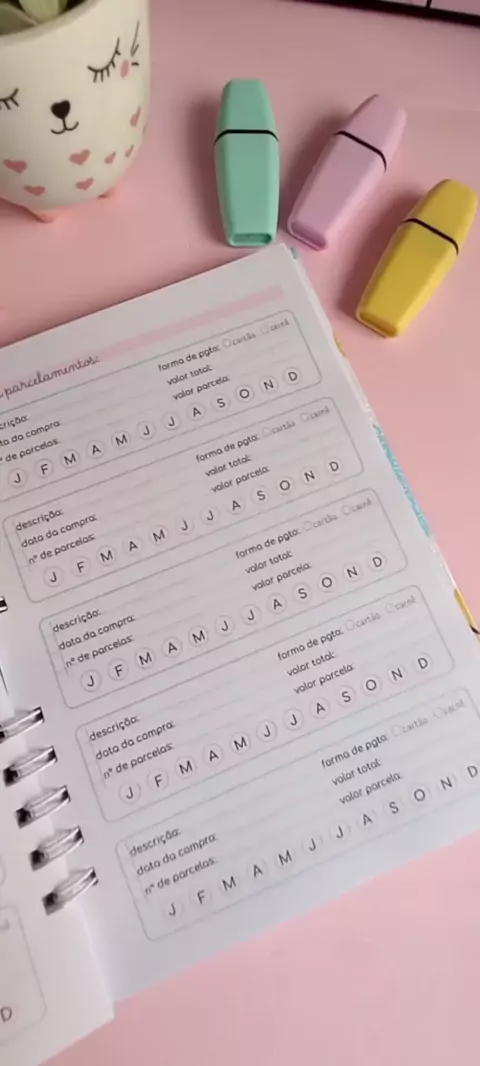 parcelamentos:
crição: forma de pgto: cartão carnê
ta da compra: valor total:
de parcelas: valor parcela:
J F M A M J J A S O N D
descrição: forma de pgto: cartão carnê
data da compra: valor total:
nº de parcelas: valor parcela:
J F M A M J J A S O N D
descrição: forma de pgto: cartão carnê
data da compra: valor total:
nº de parcelas: valor parcela:
J F M A M J J A S O N D
descrição: forma de pgto: cartão carnê
data da compra: valor total:
nº de parcelas: valor parcela:
J F M A M J J A S O N D
descrição: forma de pgto: cartão carnê
data da compra: valor total:
nº de parcelas: valor parcela:
J F M A M J J A S O N D
D